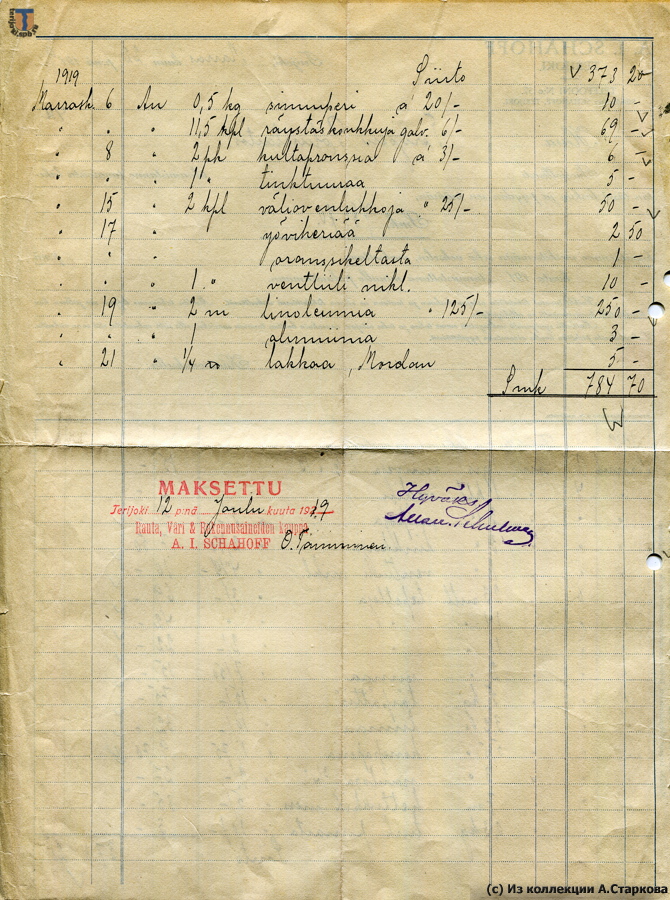 1919 Siirto 373 20
Marrask. 6 An 0,5 kg sinuuperi á 20/- 10 -
" " " 11,5 kpl räystäskoukkuja galv. 6/- 69 -
" 8 " 2 pk kultapronssia á 3/- 6 -
" " " 1 " tinktuuraa 5 -
" 15 " 2 kpl väliovenlukkoja " 25/- 50 -
" 17 " yöviheriää 2 50
" " " oranssikeltasta 1 -
" " " 1 " ventiiili nikl. 10 -
" 19 " 2 m linoleumia " 125/- 250 -
" " " 1 alumiinia 3 -
" 21 " 1/4 lakkaa, Mordan 5 -
Smk 784 70
MAKSETTU
Terijoki 12 p:nä Joulu kuuta 1919
Rauta, Väri & Rakennusaineiden kauppa
A. I. SCHAHOFF
Hyväks.
(c) Из коллекции А.Старкова